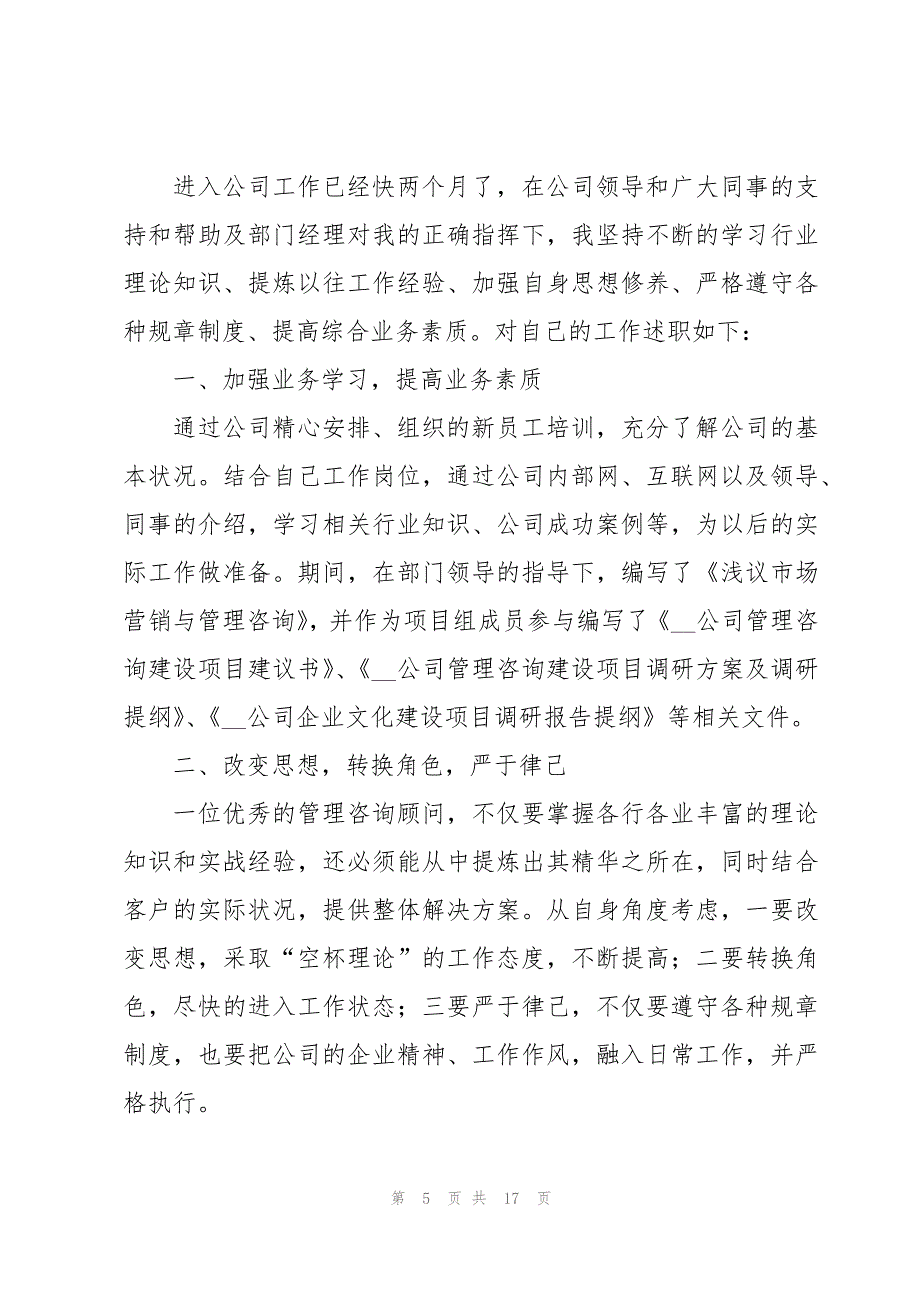 进入公司工作已经快两个月了，在公司领导和广大同事的支
持和帮助及部门经理对我的正确指挥下，我坚持不断的学习行业
理论知识、提炼以往工作经验、加强自身思想修养、严格遵守各
种规章制度、提高综合业务素质。对自己的工作述职如下：
一、加强业务学习，提高业务素质
通过公司精心安排、组织的新员工培训，充分了解公司的基
本状况。结合自己工作岗位，通过公司内部网、互联网以及领导、
同事的介绍，学习相关行业知识、公司成功案例等，为以后的实
际工作做准备。期间，在部门领导的指导下，编写了《浅议市场
营销与管理咨询》，并作为项目组成员参与编写了《__公司管理咨
询建设项目建议书》、《__公司管理咨询建设项目调研方案及调研
提纲》、《__公司企业文化建设项目调研报告提纲》等相关文件。
二、改变思想，转换角色，严于律己
一位优秀的管理咨询顾问，不仅要掌握各行各业丰富的理论
知识和实战经验，还必须能从中提炼出其精华之所在，同时结合
客户的实际状况，提供整体解决方案。从自身角度考虑，一要改
变思想，采取“空杯理论”的工作态度，不断提高；二要转换角
色，尽快的进入工作状态；三要严于律己，不仅要遵守各种规章
制度，也要把公司的企业精神、工作作风，融入日常工作，并严
格执行。
第 5 页 共 17 页